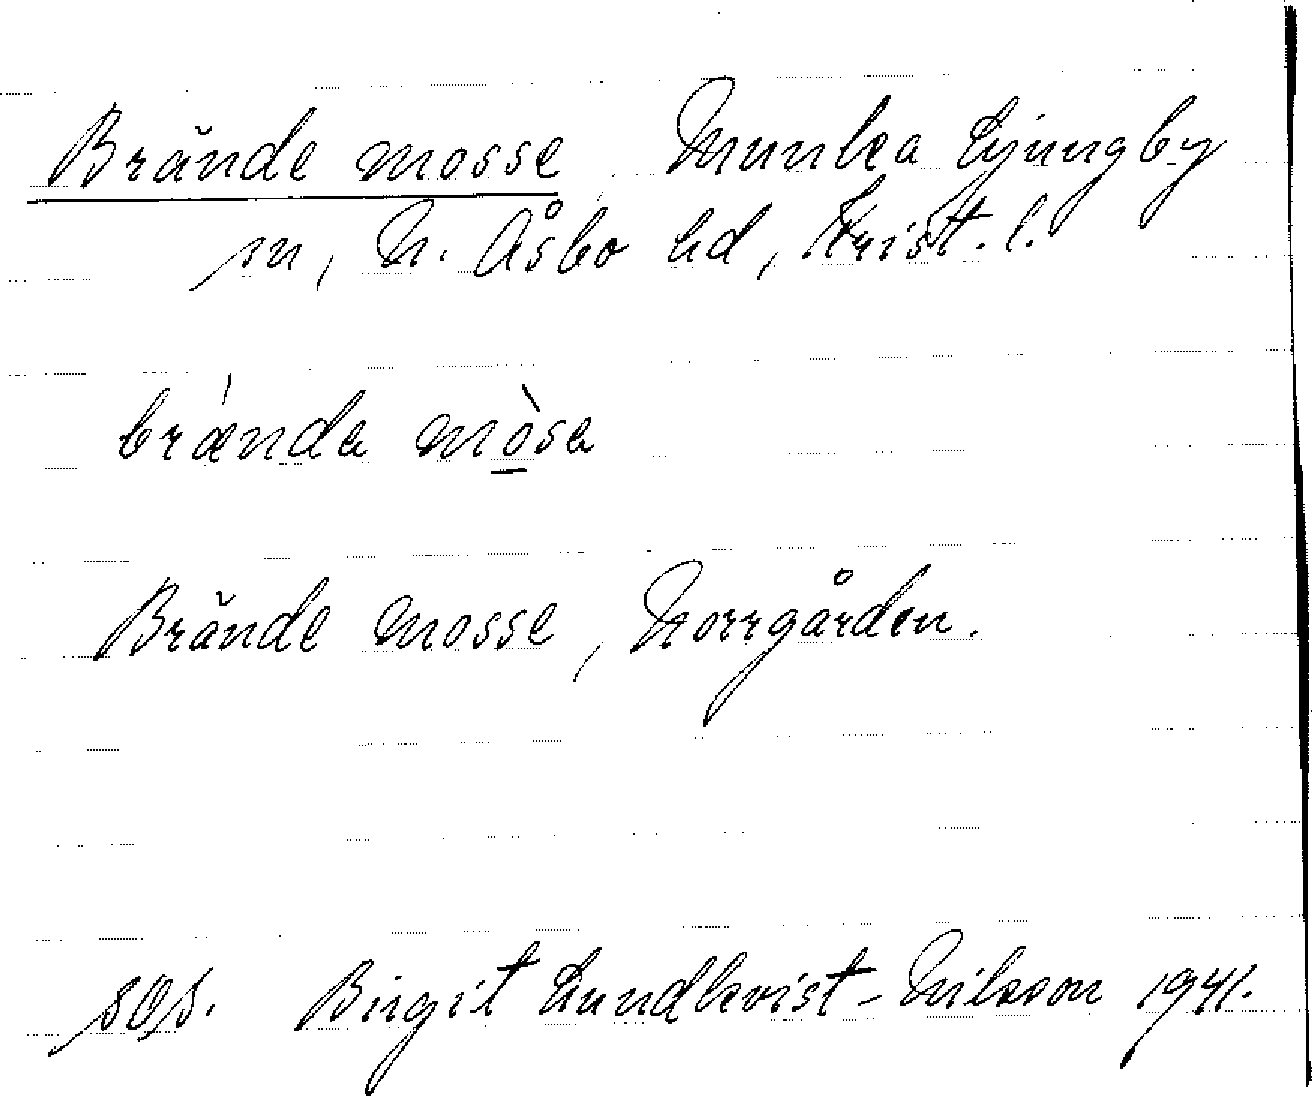 Brände mosse Munka Ljungby
sn, N. Åsbo hd, Krist. l.
brænda mòsa
Brände mosse, Norrgården.
Birgit Lundkvist-Nilsson 1941.